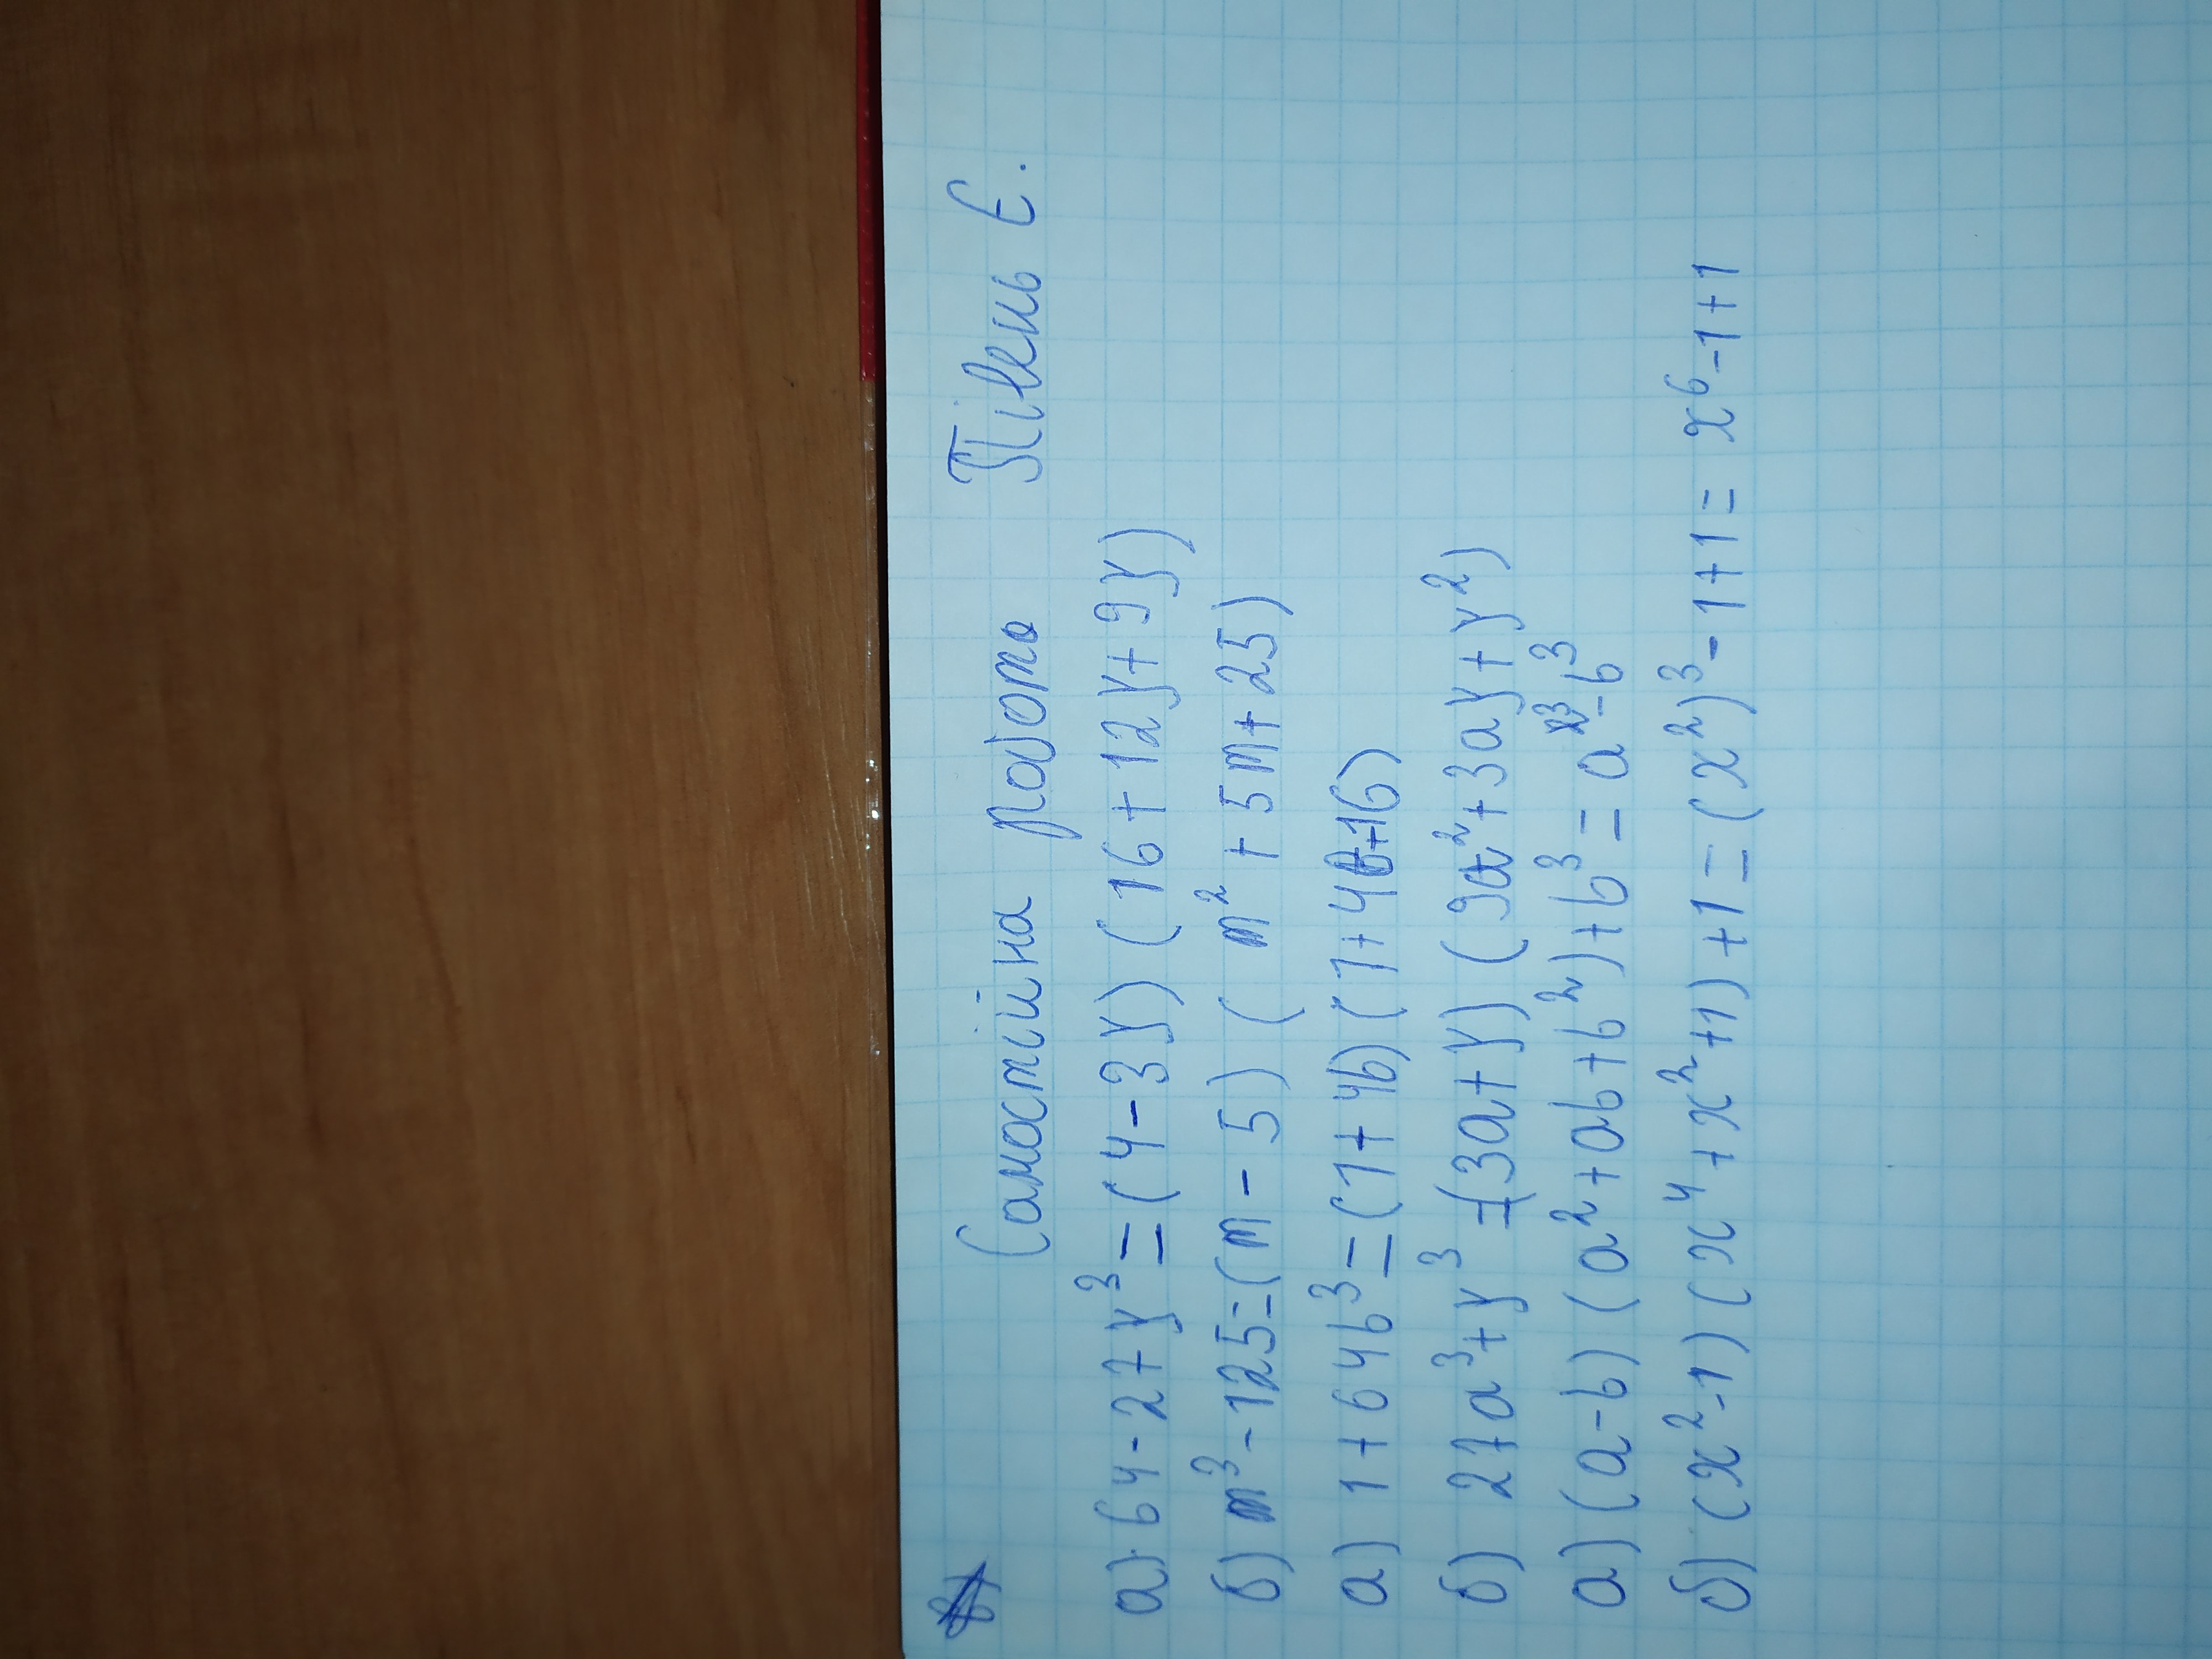 Самостійна робота Півень Є.
а) 64-27y³=(4-3y)(16+12y+9y)
б) m³-125=(m-5)(m²+5m+25)
а) 1+64b³=(1+4b)(1+4b+16)
б) 27a³+y³=(3a+y)(9a²+3ay+y²)
а) (a-b)(a²+ab+b²)+b³=a³-b³
б) (x²-1)(x⁴+x²+1)+1=(x²)³-1+1=x⁶-1+1